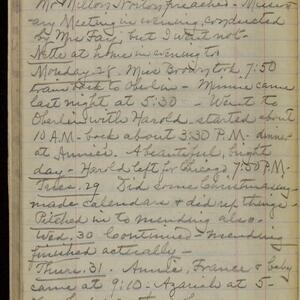 Mr Milton Norton preached - Mission-
ary Meeting in evening, conducted
by Mrs Fay, but I went not -
Nette at home in evening too
Monday 28. Miss Brown took 7:50
train back to Oberlin - Minnie came
last night at 5:30 - Went to
Oberlin with Harold. started about
10 A.M. - back about 3:30 P.M. - dinner
at Annie's. A beautiful, bright
day - Harold left for Chicago 7:50 P.M. -
Tues. 29 Did some Christmasing
made calendars & did up things -
Pitched in to mending also -
Wed. 30 Continued - mending
finished actually -
Thurs. 31. Annie, France & baby
came at 9:10. Azariah at 5 -